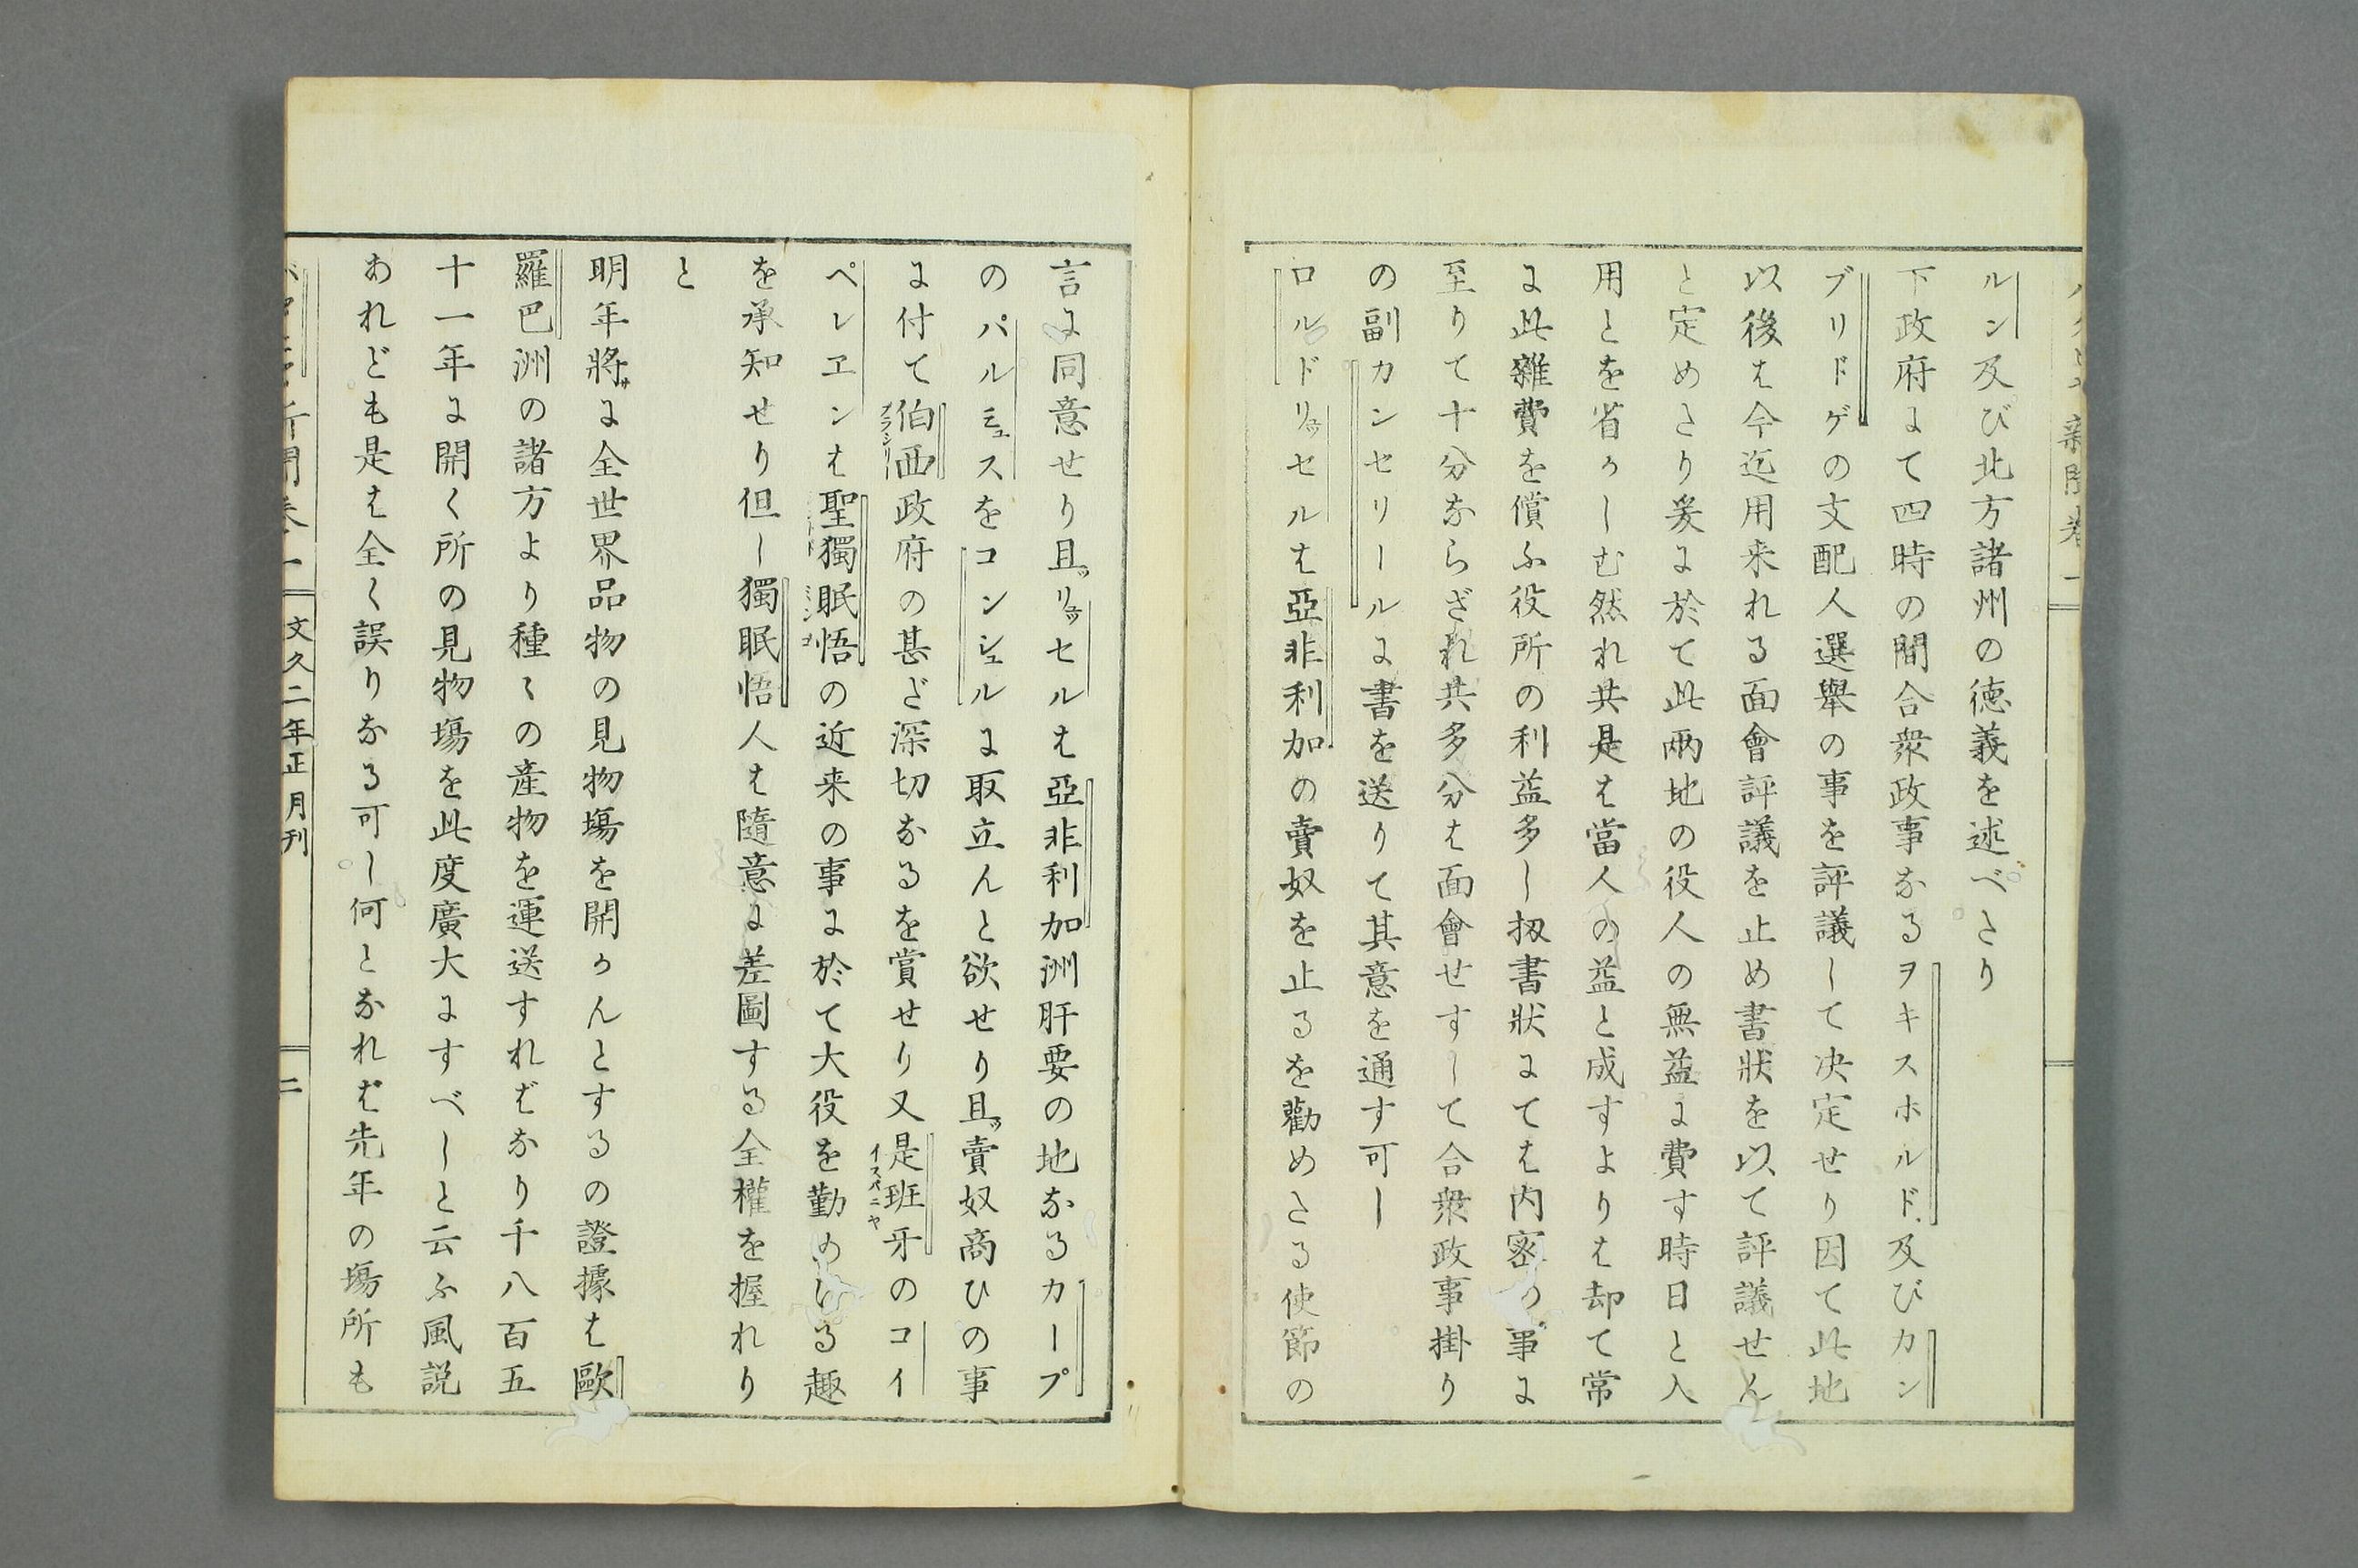 ルン及び北方諸州の徳義を述べたり
下政府にて四時の間合衆政事なるヲキスホルド及びカン
ブリドゲの支配人選舉の事を評議して决定せり因て此地
以後は今迄用来れる面會評議を止め書狀を以て評議せん
と定めたり爰に於て此兩地の役人の無益に費す時日と入
用とを省かしむ然れ共是は當人の益と成すよりは却て常
に此雜費を償ふ役所の利益多し扨書狀にては内密の事に
至りて十分ならざれ共多分は面會せすして合衆政事掛り
の副カンセリールに書を送りて其意を通す可し
ロルドリュッセルは亞非利加の賣奴を止るを勸めたる使節の
言に同意せり且ッリュッセルは亞非利加洲肝要の地なるカープ
のパルミュスをコンシュルに取立んと欲せり且ッ賣奴商ひの事
に付て伯西政府の甚ざ深切なるを賞せり又是班牙のコイ
ペレヱンは聖獨眠悟の近来の事に於て大役を勤める趣
を承知せり但し獨眠悟人は隨意に差圖する全權を握れり
と
明年將サに全世界品物の見物塲を開かんとするの證據は歐
羅巴洲の諸方より種〻の産物を運送すればなり千八百五
十一年に開く所の見物塲を此度廣大にすべしと云ふ風説
あれども是は全く誤りなる可し何となれば先年の塲所も
文久二年正月刊
二